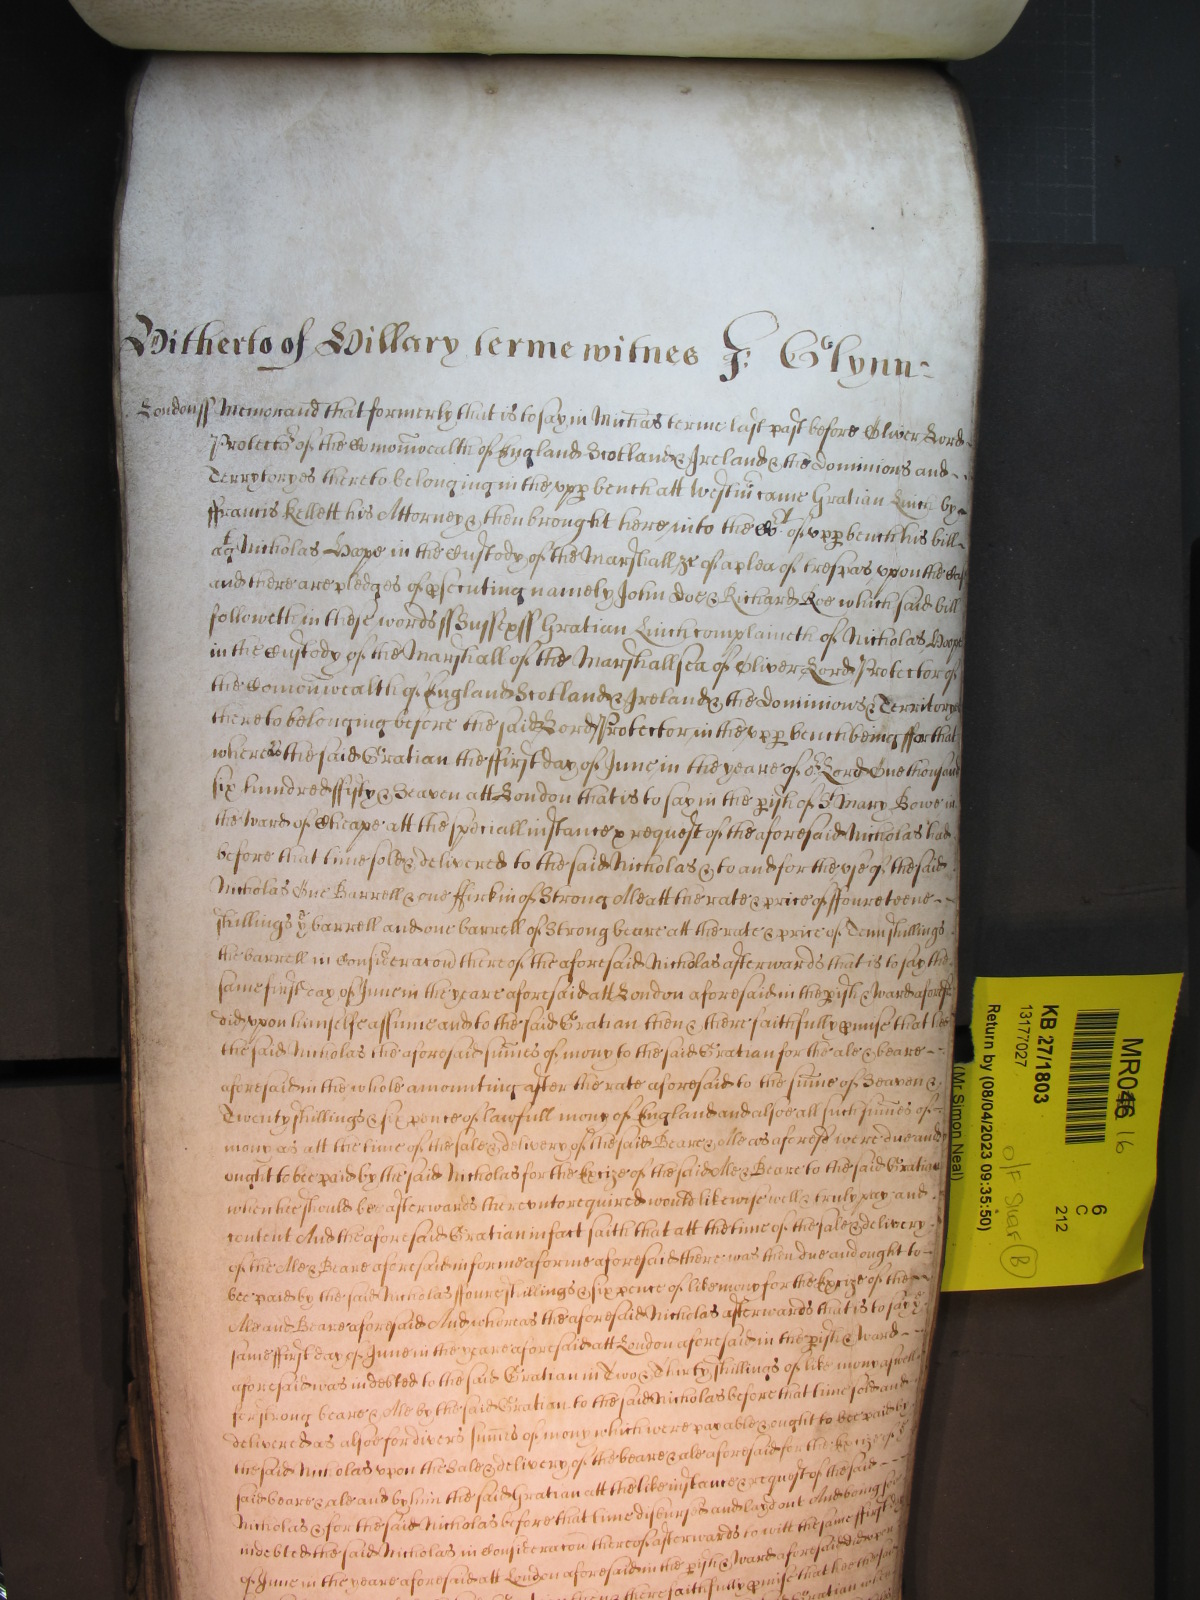 Hitherto of Hillary terme witnes J: Glynn
London ss Memorand that formerly that is to say in Michas terme last past before Oliver Lord
Protector of the Comonwealth of England Scotland & Ireland & the Dominions and
Terrytoryes thereto belonging in the upp bench att Westm came Gratian Linch by
ffrancis Kellett his Attorney & then brought here into the Ct of upp bench his bill
agt Nicholas Hope in the Custody of the Marshall &c of a plea of trespas upon the Case
and there are pledges of psecuting namely John Doe & Richard Roe which said bill
followeth in these words ss Sussex ss Gratian Linch complaineth of Nicholas Hope
in the Custody of the Marshall of the Marshallsea of Oliver Lord Protector of
the Comonwealth of England Scotland & Ireland & the Dominions & Territorys
thereto belonging before the said Lord Protector in the upp bench being ffor that
whereas the said Gratian the ffirst day of June in the yeare of or Lord One thousand
six hundred ffifty & Seaven att London that is to say in the pish of St Mary Bowe in
the Ward of Cheape att the speciall instance & request of the aforesaid Nicholas had
before that time sold & delivered to the said Nicholas & to and for the use of the said
Nicholas One Barrell & one ffirkin of Strong Ale att the rate & price of ffoureteene
shillings ye barrell and one barrell of Strong beare att the rate & price of Tenn shillings
the barrell in Consideracon thereof the aforesaid Nicholas afterwards that is to say the
same first day of June in the yeare aforesaid att London aforesaid in the pish & Ward aforesd
did upon himselfe assume and to the said Gratian then & there faithfully pmise that hee
the said Nicholas the aforesaid sumes of mony to the said Gratian for the ale & beare
aforesaid in the whole amounting after the rate aforesaid to the sume of Seaven &
Twenty shillings & six pence of lawfull mony of England and alsoe all such sumes of
mony as att the time of the sale & delivery of the said Beare & Ale as aforesd were due and
ought to bee paid by the said Nicholas for the Excize of the said Ale & Beare to the said Gratian
when hee should bee afterwards thereunto required would likewise well & truly pay and
content And the aforesaid Gratian in fact saith that att the time of the sale & delivery
of the Ale & Beare aforesaid in forme aforme aforesaid there was then due and ought to
bee paid by the said Nicholas ffoure shillings & six pence of like mony for the Excize of the
Ale and Beare aforesaid And whereas the aforesaid Nicholas afterwards that is to say ye
same ffirst day of June in the yeare aforesaid att London aforesaid in the pish & Ward
aforesaid was indebted to the said Gratian in Two & Thirty shillings of like mony aswell
for strong beare & Ale by the said Gratian to the said Nicholas before that time sold and
delivered as alsoe for divers sumes of mony which were payable & ought to bee paid by
the said Nicholas upon the Sale & delivery of the beare & ale aforesaid for the Excize of ye
said beare & ale and by him the said Gratian att the like instance & request of the said
Nicholas & for the said Nicholas before that time disbursed and layd out And being soe
indebted the said Nicholas in Consideracon thereof afterwards to witt the same ffirst
of June in the yeare aforesaid att London aforesaid in the pish & Ward aforesaid did upon
there faithfully pmise that hee the said
MR046 16
6
C
212
KB 27/1803
13177027
O/F Shar B
Return by (08/04/2023 09:35:50)
(Mr Simon Neal)